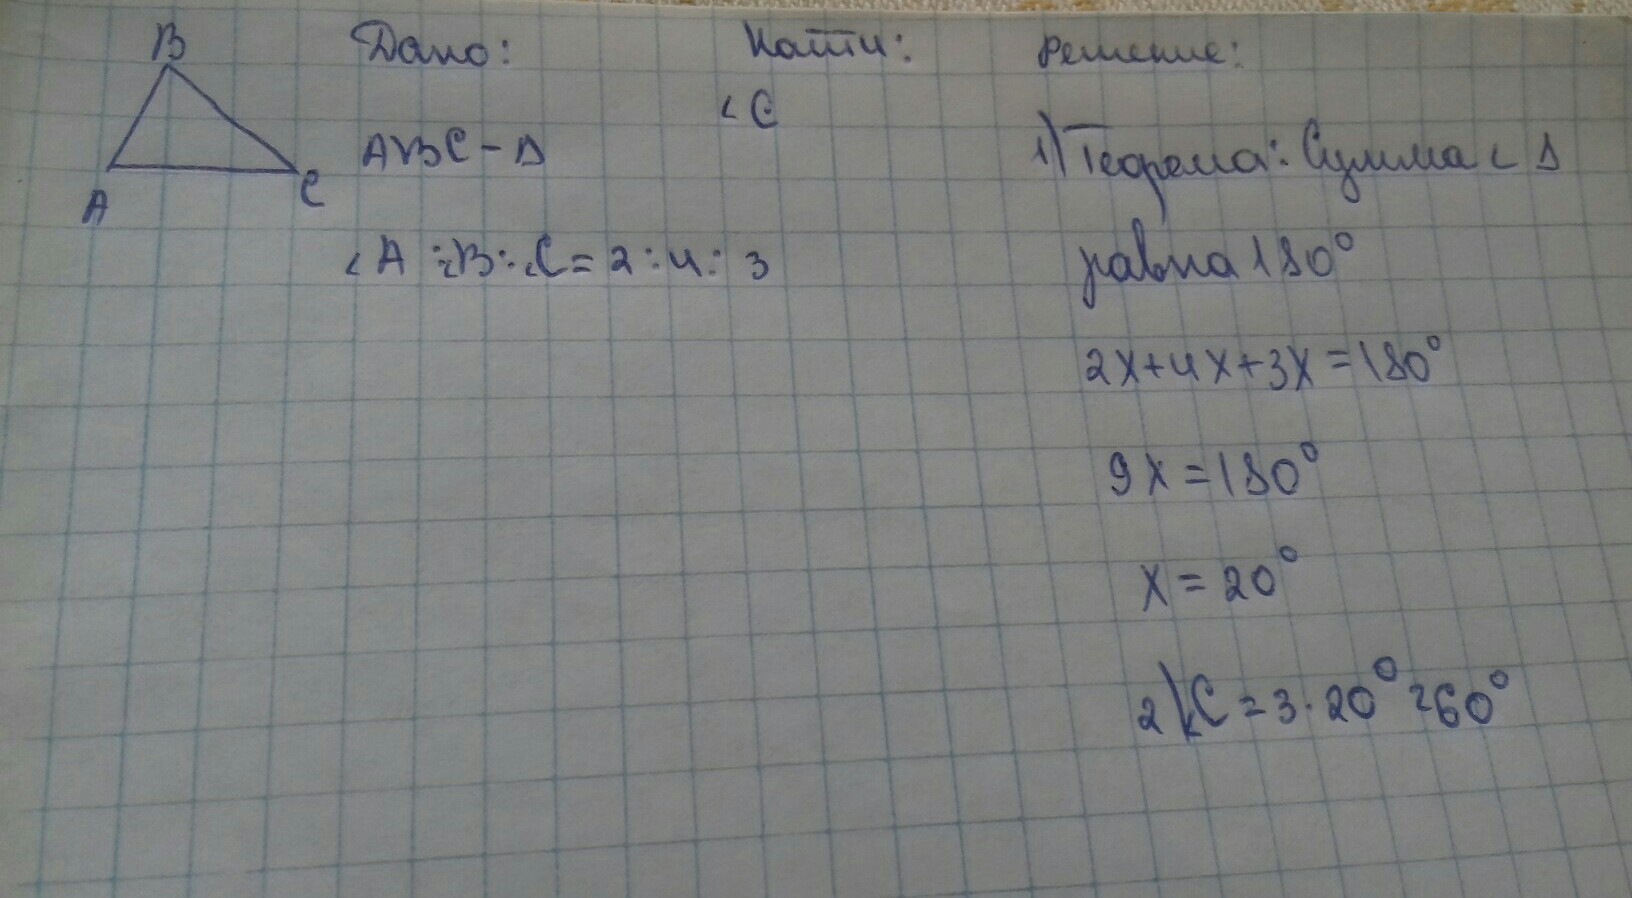 B
A
C
Дано:
ABC - Δ
∠A : ∠B : ∠C = 2 : 4 : 3
Найти:
∠C
Решение:
1) Теорема: Сумма ∠ Δ
равна 180°
2x+4x+3x=180°
9x=180°
x = 20°
2) ∠C = 3 · 20° = 60°